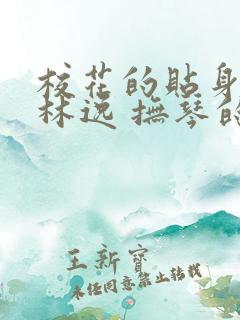 校花的贴身
林逸 抚琴的
王新寶
未经同意禁止转载